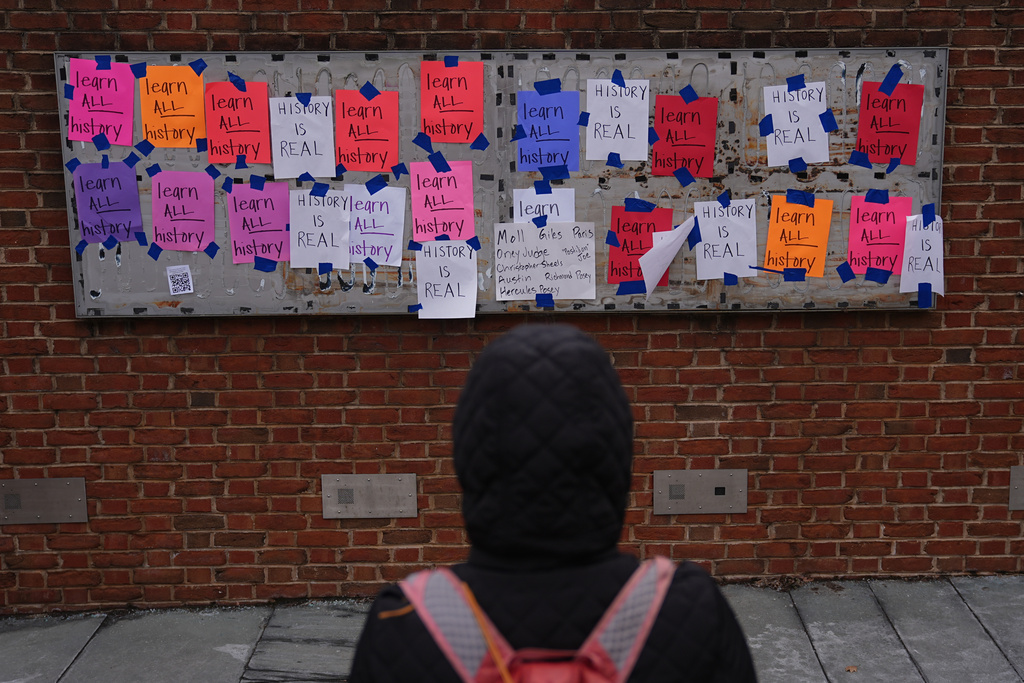 learn
ALL
history
learn
ALL
history
learn
ALL
history
HISTORY
IS
REAL
learn
ALL
history
learn
ALL
history
learn
ALL
history
HISTORY
IS
REAL
learn
ALL
history
HISTORY
IS
REAL
learn
ALL
history
learn
ALL
history
learn
ALL
history
learn
ALL
history
HISTORY
IS
REAL
learn
ALL
history
learn
ALL
history
HISTORY
IS
REAL
learn
Moll Giles Paris
Oney Judge
Joe
Christopher Sheels
Austin Richmond Posey
Hercules Posey
learn
ALL
history
HISTORY
IS
REAL
learn
ALL
history
learn
ALL
history
HISTORY
IS
REAL